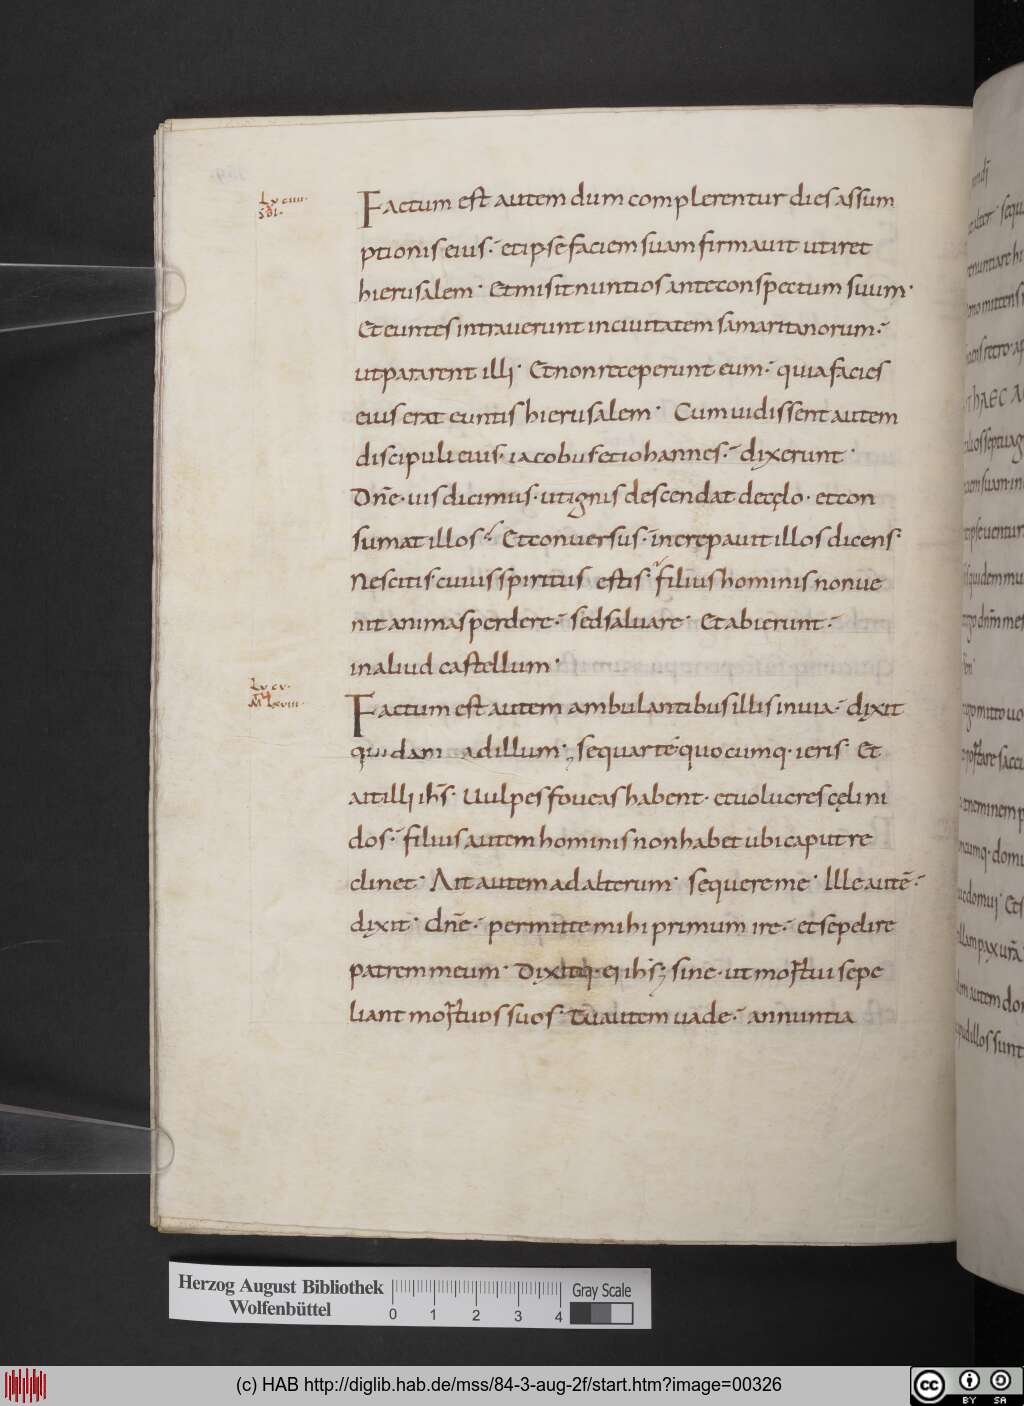 Lu ciiii·
sol·
Factum est autem dum complerentur dies assum
ptionis eius· et ipse faciem suam firmauit ut iret
hierusalem· Et misit nuntios ante conspectum suum·
Et euntes intrauerunt in ciuitatem samaritanorum·
ut pararent illi· Et non receperunt eum· quia facies
eius erat euntis hierusalem· Cum uidissent autem
discipuli eius· iacobus et iohannes· dixerunt·
Dn̄e· uis dicimus· ut ignis descendat de cęlo· et con
sumat illos· Et conuersus· increpauit illos dicens·
Nescitis cuius spiritus estis· filius hominis non ue
nit animas perdere· sed saluare· Et abierunt·
in aliud castellum·
Lu cv·
M̄ lxviii·
Factum est autem ambulantibus illis in uia· dixit
quidam ad illum· sequar te quocumq· ieris· Et
ait illi ih̄s· Uulpes foueas habent· et uolucres cęli ni
dos· filius autem hominis non habet ubi caput re
clinet· Ait autem ad alterum· sequere me· Ille autē·
dixit· dn̄e· permitte mihi primum ire· et sepelire
patrem meum· Dixitq· ei ih̄s· sine· ut mortui sepe
liant mortuos suos· Tu autem uade· annuntia
Herzog August Bibliothek
Wolfenbüttel
0 1 2 3 4
Gray Scale
(c) HAB http://diglib.hab.de/mss/84-3-aug-2f/start.htm?image=00326
cc BY SA